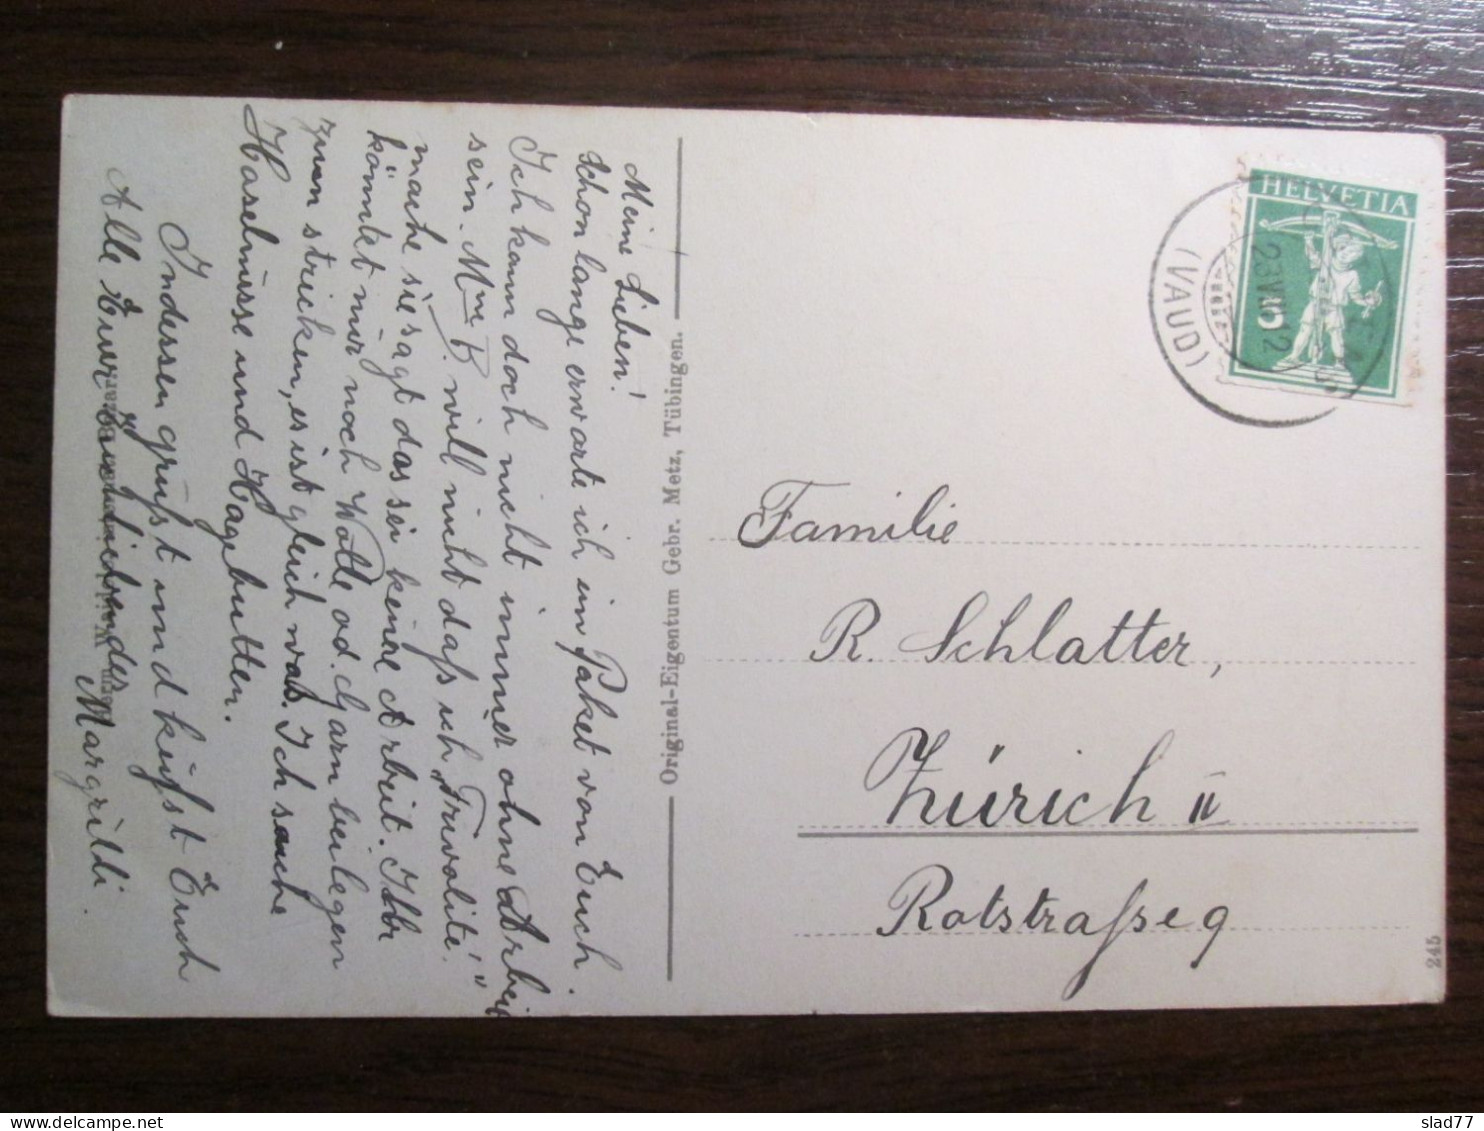 Meine Lieben!
Schon lange erwarte ich ein Paket von Euch.
Ich kann doch nicht immer ohne Arbeit
sein. Mme B. will nicht daß ich „Frivolité"
mache sie sagt das sei keine Arbeit. Ihr
könntet mir noch Wolle od. Garn beilegen
zum stricken, es ist gleich was. Ich suche
Haselnüsse und Hagebutten.
Indessen grüßt und küßt Euch
Alle Eure Euch liebende
Margritli.
Original-Eigentum Gebr. Metz, Tübingen.
HELVETIA
5
23 VII 12
(VAUD)
Familie
R. Schlatter,
Zürich II
Rotstraße 9
245
slad77